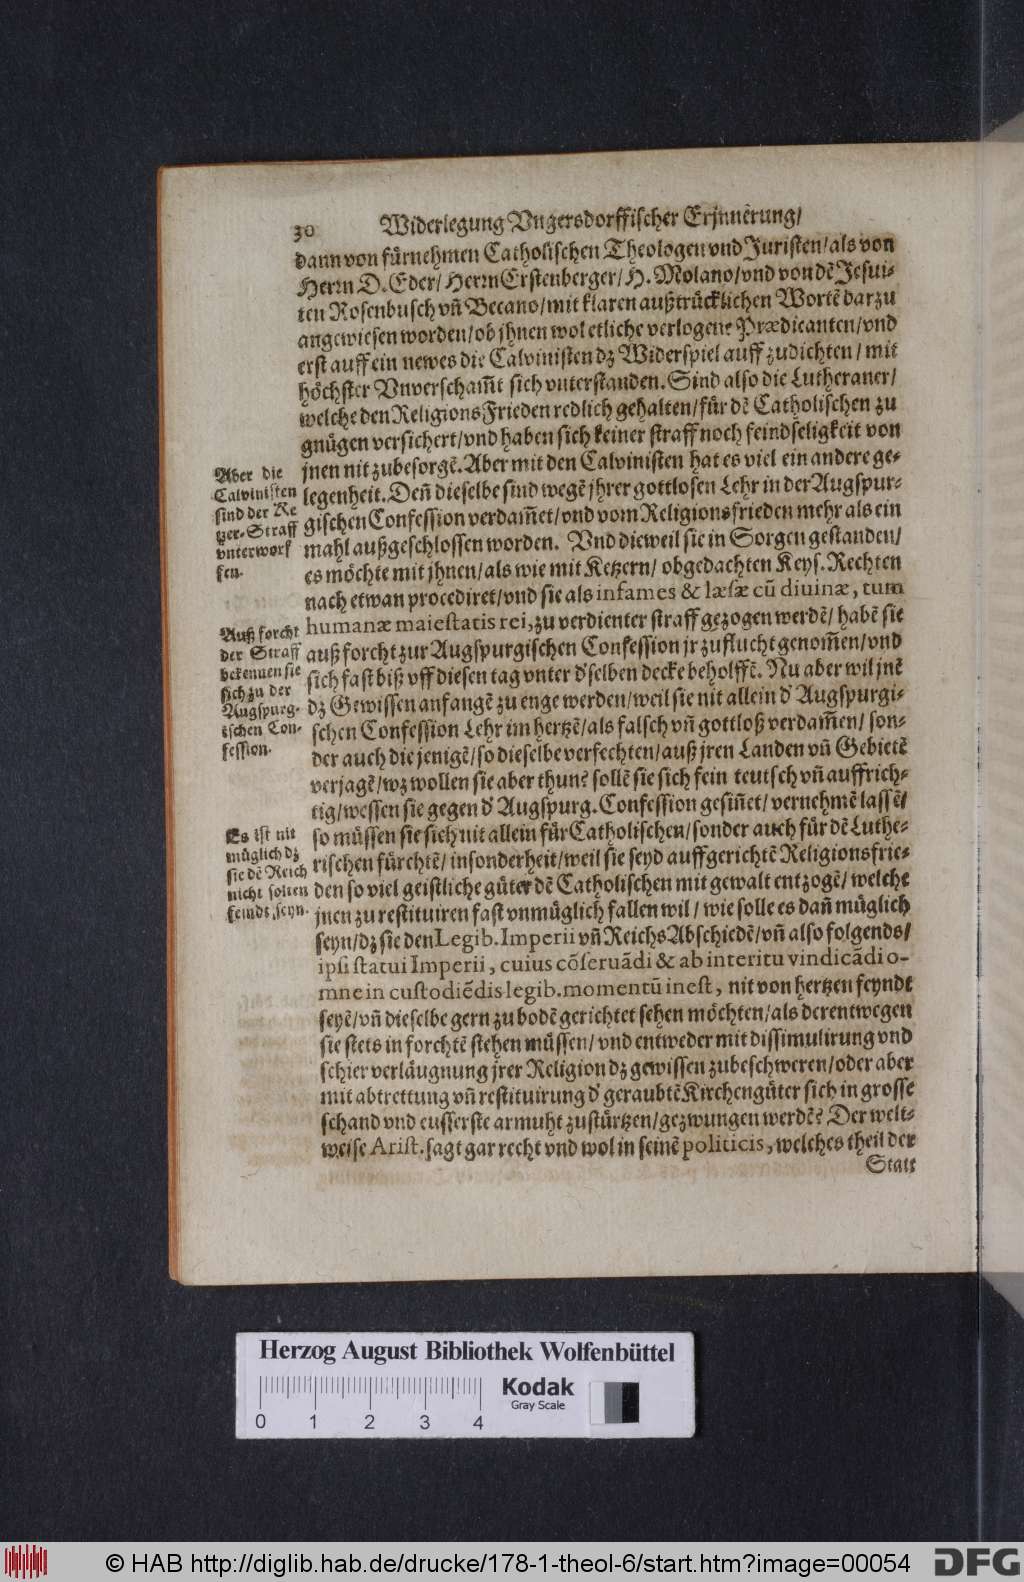 30 Widerlegung Vngersdorffischer Erjnnerung/
dann von fürnehmen Catholischen Theologen vnd Juristen/als von
Herrn D. Eder/ Herrn Erstenberger/ H. Molano/vnd von dẽ Jesui-
ten Rosenbusch vñ Becano/mit klaren außtrücklichen Wortẽ darzu
angewiesen worden/ob jhnen wol etliche verlogene Prædicanten/vnd
erst auff ein newes die Calvinisten dz Widerspiel auff zudichten/ mit
höchster Vnverscham̃t sich vnterstanden. Sind also die Lutheraner/
welche den ReligionsFrieden redlich gehalten/für dẽ Catholischen zu
gnügen versichert/vnd haben sich keiner straff noch feindseligkeit von
jnen nit zubesorgẽ. Aber mit den Calvinisten hat es viel ein andere ge-
legenheit. Deñ dieselbe sind wegẽ jhrer gottlosen Lehr in der Augspur-
gischen Confession verdam̃et/vnd vom Religionsfrieden mehr als ein
mahl außgeschlossen worden. Vnd dieweil sie in Sorgen gestanden/
es möchte mit jhnen/als wie mit Ketzern/ obgedachten Keys. Rechten
nach etwan procediret/vnd sie als infames & læsæ cũ diuinæ, tum
humanæ maiestatis rei, zu verdienter straff gezogen werdẽ/ habẽ sie
auß forcht zur Augspurgischen Confession jr zuflucht genom̃en/vnd
sich fast biß vff diesen tag vnter d' selben decke beholffẽ. Nu aber wil jnẽ
dz Gewissen anfangẽ zu enge werden/weil sie nit allein d' Augspurgi-
schen Confession Lehr im hertzẽ/als falsch vñ gottloß verdam̃en/ son-
der auch die jenigẽ/so dieselbe verfechten/auß jren Landen vñ Gebietẽ
verjagẽ/wz wollen sie aber thun? sollẽ sie sich fein teutsch vñ auffrich-
tig/wessen sie gegen d' Augspurg. Confession gesiñet/ vernehmẽ lassẽ/
so müssen sie sich nit allein für Catholischen/sonder auch für dẽ Luthe-
rischen fürchtẽ/ insonderheit/weil sie seyd auffgerichtẽ Religionsfrie-
den so viel geistliche güter dẽ Catholischen mit gewalt entzogẽ/ welche
jnen zu restituiren fast vnmüglich fallen wil/ wie solle es dañ müglich
seyn/dz sie den Legib. Imperii vñ ReichsAbschiedẽ/vñ also folgends/
ipsi statui Imperii, cuius cõseruãdi & ab interitu vindicãdi o-
mne in custodiẽdis legib. momentũ inest, nit von hertzen feyndt
seyẽ/vñ dieselbe gern zu bodẽ gerichtet sehen möchten/als derentwegen
sie stets in forchtẽ stehen müssen/ vnd entweder mit dissimulirung vnd
schier verläugnung jrer Religion dz gewissen zubeschweren/oder aber
mit abtrettung vñ restituirung d' geraubtẽ Kirchengüter sich in grosse
schand vnd eusserste armuht zustürtzen/gezwungen werdẽ? Der welt-
weise Arist. sagt gar recht vnd wol in seinẽ politicis, welches theil der
Statt
Aber die
Calvinisten
sind der Ke
tzer-Straff
vnterworf
fen.
Auß forcht
der Straff
bekennen sie
sich zu der
Augspurg-
ischen Con-
fession.
Es ist nit
müglich dz
sie dẽ Reich
nicht solten
feindt seyn.
Herzog August Bibliothek Wolfenbüttel
Kodak
Gray Scale
0 1 2 3 4
© HAB http://diglib.hab.de/drucke/178-1-theol-6/start.htm?image=00054
DFG